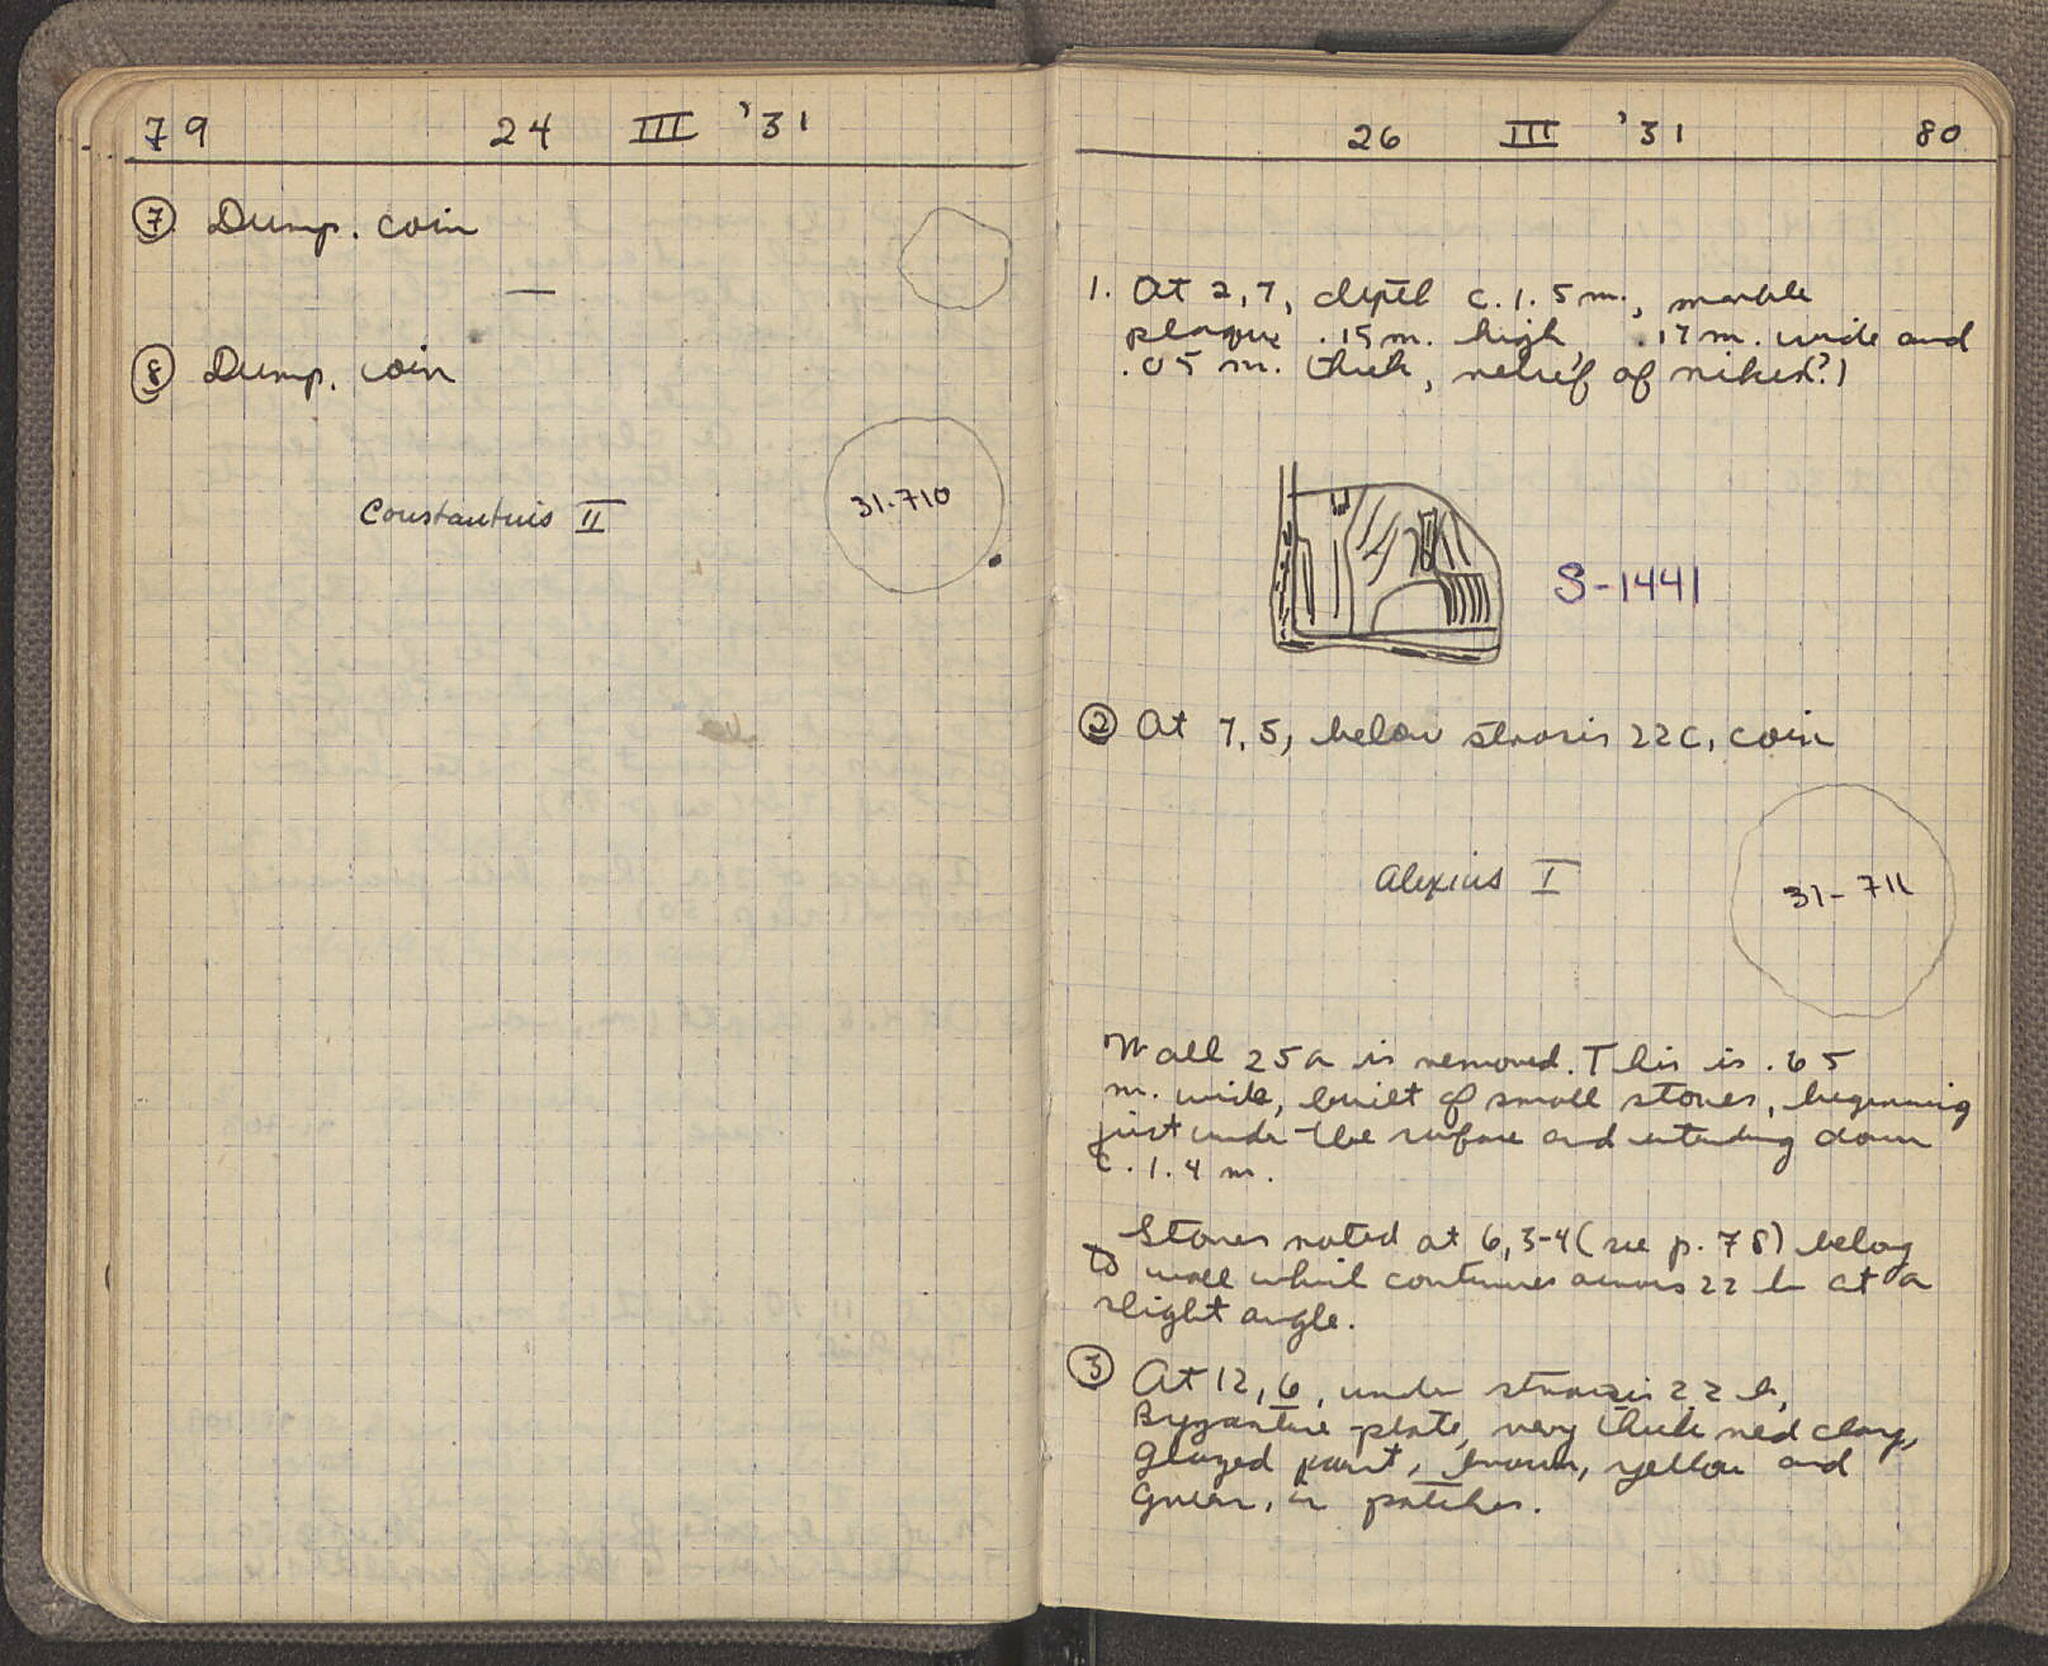 79 24 III '31
⑦ Dump. coin
—
⑧ Dump. coin
Constantius II
31-710
26 III '31 80
1. At 2,7, depth c. 1.5 m., marble
plaque .15 m. high, .17 m. wide and
.05 m. thick, relief of nike(?)
S-1441
② At 7,5, below strosis 22c, coin
Alexius I
31-711
Wall 25a is removed. This is .65
m. wide, built of small stones, beginning
just under the surface and extending down
c. 1.4 m.
Stones noted at 6,3-4 (see p. 78) belong
to wall which continues across 22 b at a
slight angle.
③ At 12,6, under strosis 22 b,
Byzantine plate, very thick red clay,
glazed paint, brown, yellow and
green, in patches.